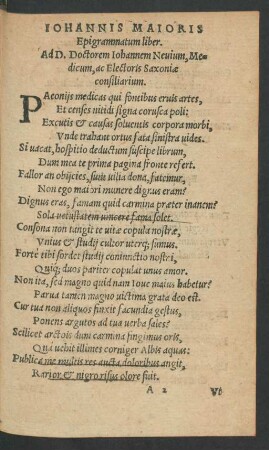 IOHANNIS MAIORIS
Epigrammatum liber.
Ad D. Doctorem Iohannem Neuium, Me-
dicum, ac Electoris Saxoniæ
consiliarium.
PAeonijs medicas qui fontibus eruis artes,
Et censes nitidi signa corusca poli:
Excutis & causas soluentis corpora morbi,
Vnde trahant ortus fata sinistra uides.
Si uacat, hospitio deductum suscipe librum,
Dum mea te prima pagina fronte refert.
Fallor an obijcies, sunt uilia dona, fatemur,
Non ego maiori munere dignus eram?
Dignus eras, famam quid carmina præter inanem?
Sola uetustatem uincere fama solet.
Consona non tangit te uitæ copula nostræ,
Vnius & studij cultor uterq; sumus.
Forte tibi sordet studij coniunctio nostri,
Quiq; duos pariter copulat unus amor.
Non ita, sed magno quid nam Ioue maius habetur?
Parua tamen magno uictima grata deo est.
Cur tua non aliquos finxit facundia gestus,
Ponens argutos ad tua uerba sales?
Scilicet arctois dum carmina fingimus oris,
Quà uehit illimes corniger Albis aquas:
Publica me multis res aucta doloribus angit,
Rarior & nigro risus olore fuit.
A 2 Vt